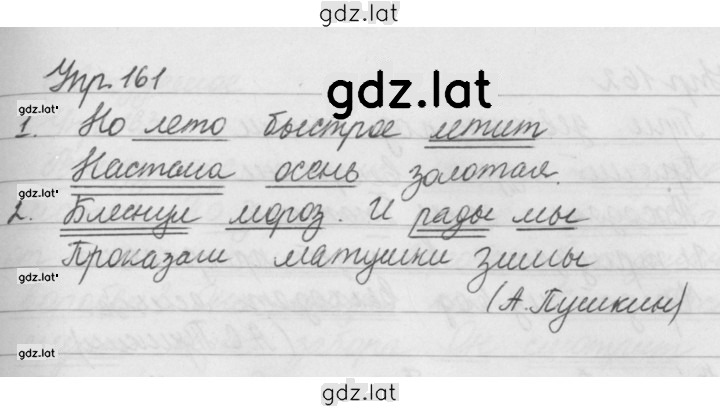 gdz.lat
Упр. 161
gdz.lat
gdz.lat
1. Но лето быстрое летит
Настала осень золотая.
gdz.lat
2. Блеснул мороз. И рады мы
Проказам матушки зимы
gdz.lat
(А. Пушкин)
gdz.lat
gdz.lat